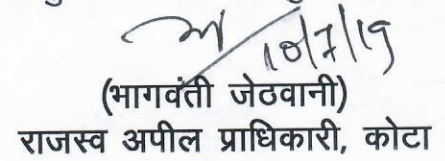 10/7/19
(भागवंती जेठवानी)
राजस्व अपील प्राधिकारी, कोटा